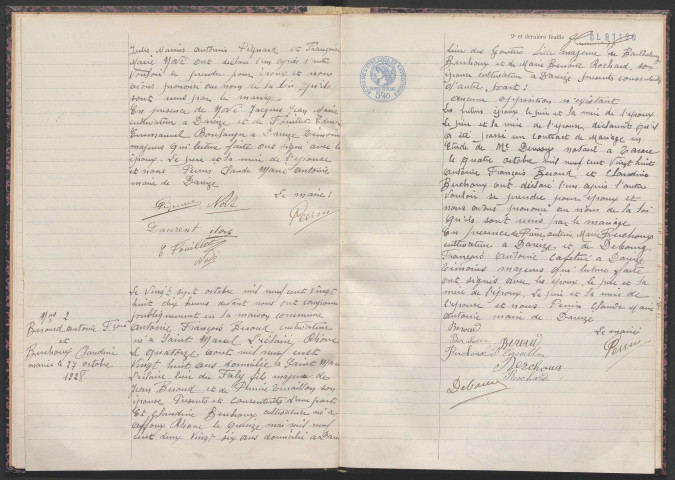 Jules Marius Antonin Pignard et Françoise
Marie Nové ont déclaré l'un après l'autre
vouloir se prendre pour époux et nous
avons prononcé au nom de la loi qu'ils
sont unis par le mariage.
En présence de Nové Jacques Jean Marie
cultivateur à Dareizé et de Feuillet
Emmanuel à Dareizé témoins
majeurs qui lecture faite ont signé avec les
époux. Le père et la mère de l'épouse
et nous Perrin Claude Marc Antoine
maire de Dareizé
Le maire :
Pignard Nové
Perrin
Laurent Nové
E Feuillet
Nové
N° 2
Beroud Antoine Frçois
et
Berchoux Claudine
mariés le 27 octobre
1928
Le vingt sept octobre mil neuf cent vingt
huit dix heures devant nous ont comparu
publiquement en la maison commune
Antoine François Beroud cultivateur
né à Saint Marcel l'Eclairé Rhône
le quatorze août mil neuf cent
domicilié à Saint Marcel
l'Eclairé fils majeur de
Jean Beroud et de son
épouse présents et consentants d'une part
Et Claudine Berchoux cultivatrice née à
Affoux Rhône le quinze mai mil neuf
cent deux domiciliée à Dareizé
2e et dernière feuille
lieu des Gouttes fille majeure de Barthélemy
Berchoux et de Marie Benoite Rochard son
épouse cultivateurs à Dareizé présents consentants
d'autre part.
aucune opposition n'existant
Les futurs époux le père et la mère de l'époux
le père et la mère de l'épouse déclarent qu'il
a été passé un contrat de mariage en
l'étude de Me notaire à Tarare
le quatre octobre mil neuf cent vingt huit
Antoine François Beroud et Claudine
Berchoux ont déclaré l'un après l'autre
vouloir se prendre pour époux et
nous avons prononcé au nom de la loi
qu'ils sont unis par le mariage
En présence de Antoine Marie Berchoux
cultivateur à Dareizé et de Debourg
François Antoine cafetier à Dareizé
témoins majeurs qui lecture faite
ont signé avec les époux, le père et la
mère de l'époux. Le père et la mère de
l'épouse et nous Perrin Claude Marc
Antoine maire de Dareizé
Le maire
Beroud
Berchoux Beroud
Perrin
Berchoux
Berchoux
Rochard
Debourg